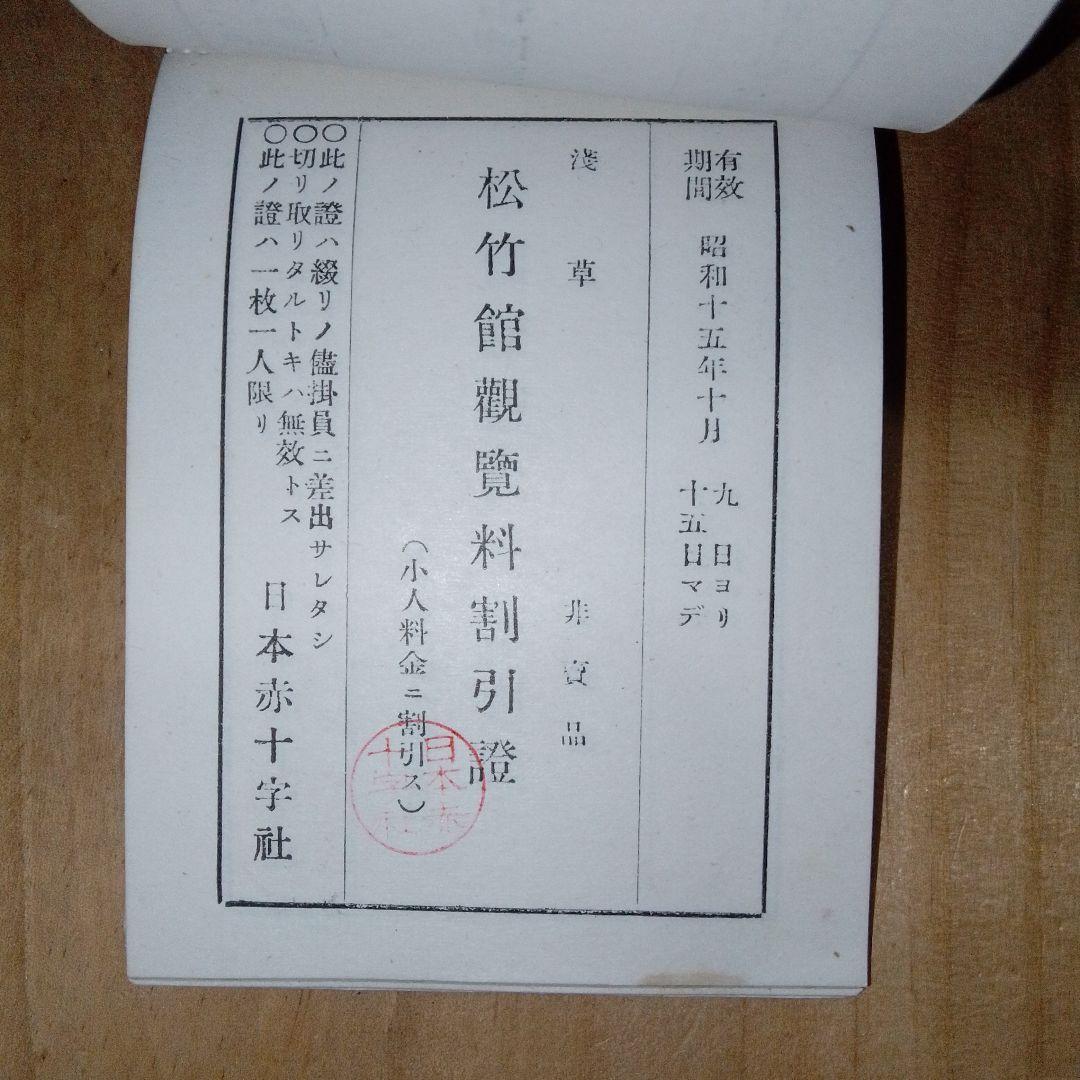 有效期間 昭和十五年十月 九日ヨリ
十五日マデ
淺草 非賣品
松竹館觀覽料割引證
(小人料金ニ割引ス)
○此ノ證ハ綴リノ儘掛員ニ差出サレタシ
○切リ取リタルトキハ無效トス
○此ノ證ハ一枚一人限リ
日本赤十字社
日本赤
十字社